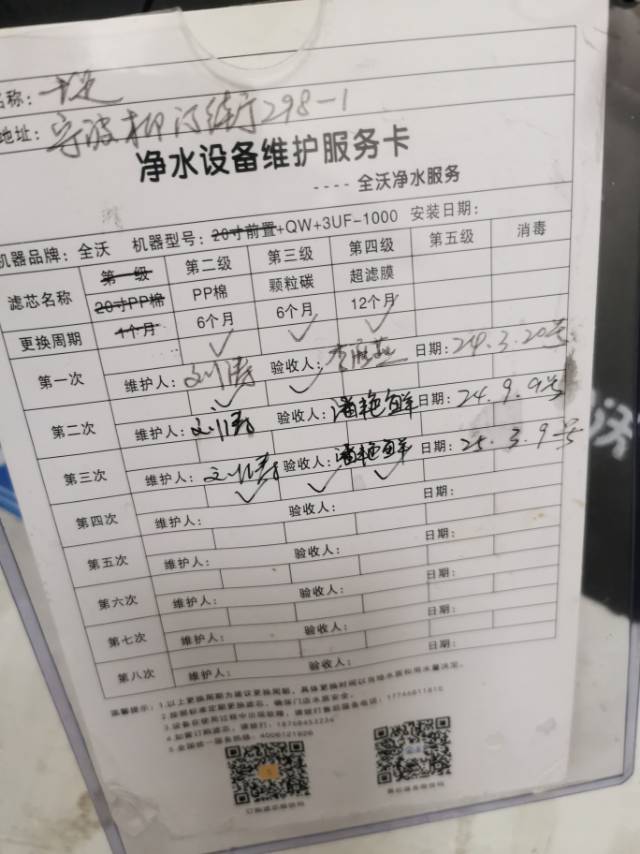 名称：
地址：宁波柳汀街298-1
净水设备维护服务卡
----全沃净水服务
机器品牌：全沃 机器型号：20寸前置+QW+3UF-1000 安装日期：
滤芯名称 第一级 第二级 第三级 第四级 第五级 消毒
20寸PP棉 PP棉 颗粒碳 超滤膜
更换周期 1个月 6个月 6个月 12个月
第一次 维护人： 验收人： 日期：24.3.20号
第二次 维护人： 验收人：潘艳鲜 日期：24.9.9号
第三次 维护人： 验收人：潘艳鲜 日期：25.3.9号
第四次 维护人： 验收人： 日期：
第五次 维护人： 验收人： 日期：
第六次 维护人： 验收人： 日期：
第七次 维护人： 验收人： 日期：
第八次 维护人： 验收人： 日期：
温馨提示：1.以上更换周期为建议更换周期，具体更换时间以当地水质和用水量决定。
2.按照标准定期更换滤芯，确保门店水质安全。
3.设备在使用过程中出现故障，请拨打售后服务电话：17746811810
4.如需订购滤芯，请拨打：18768453234
5.全国统一服务热线：4008121820